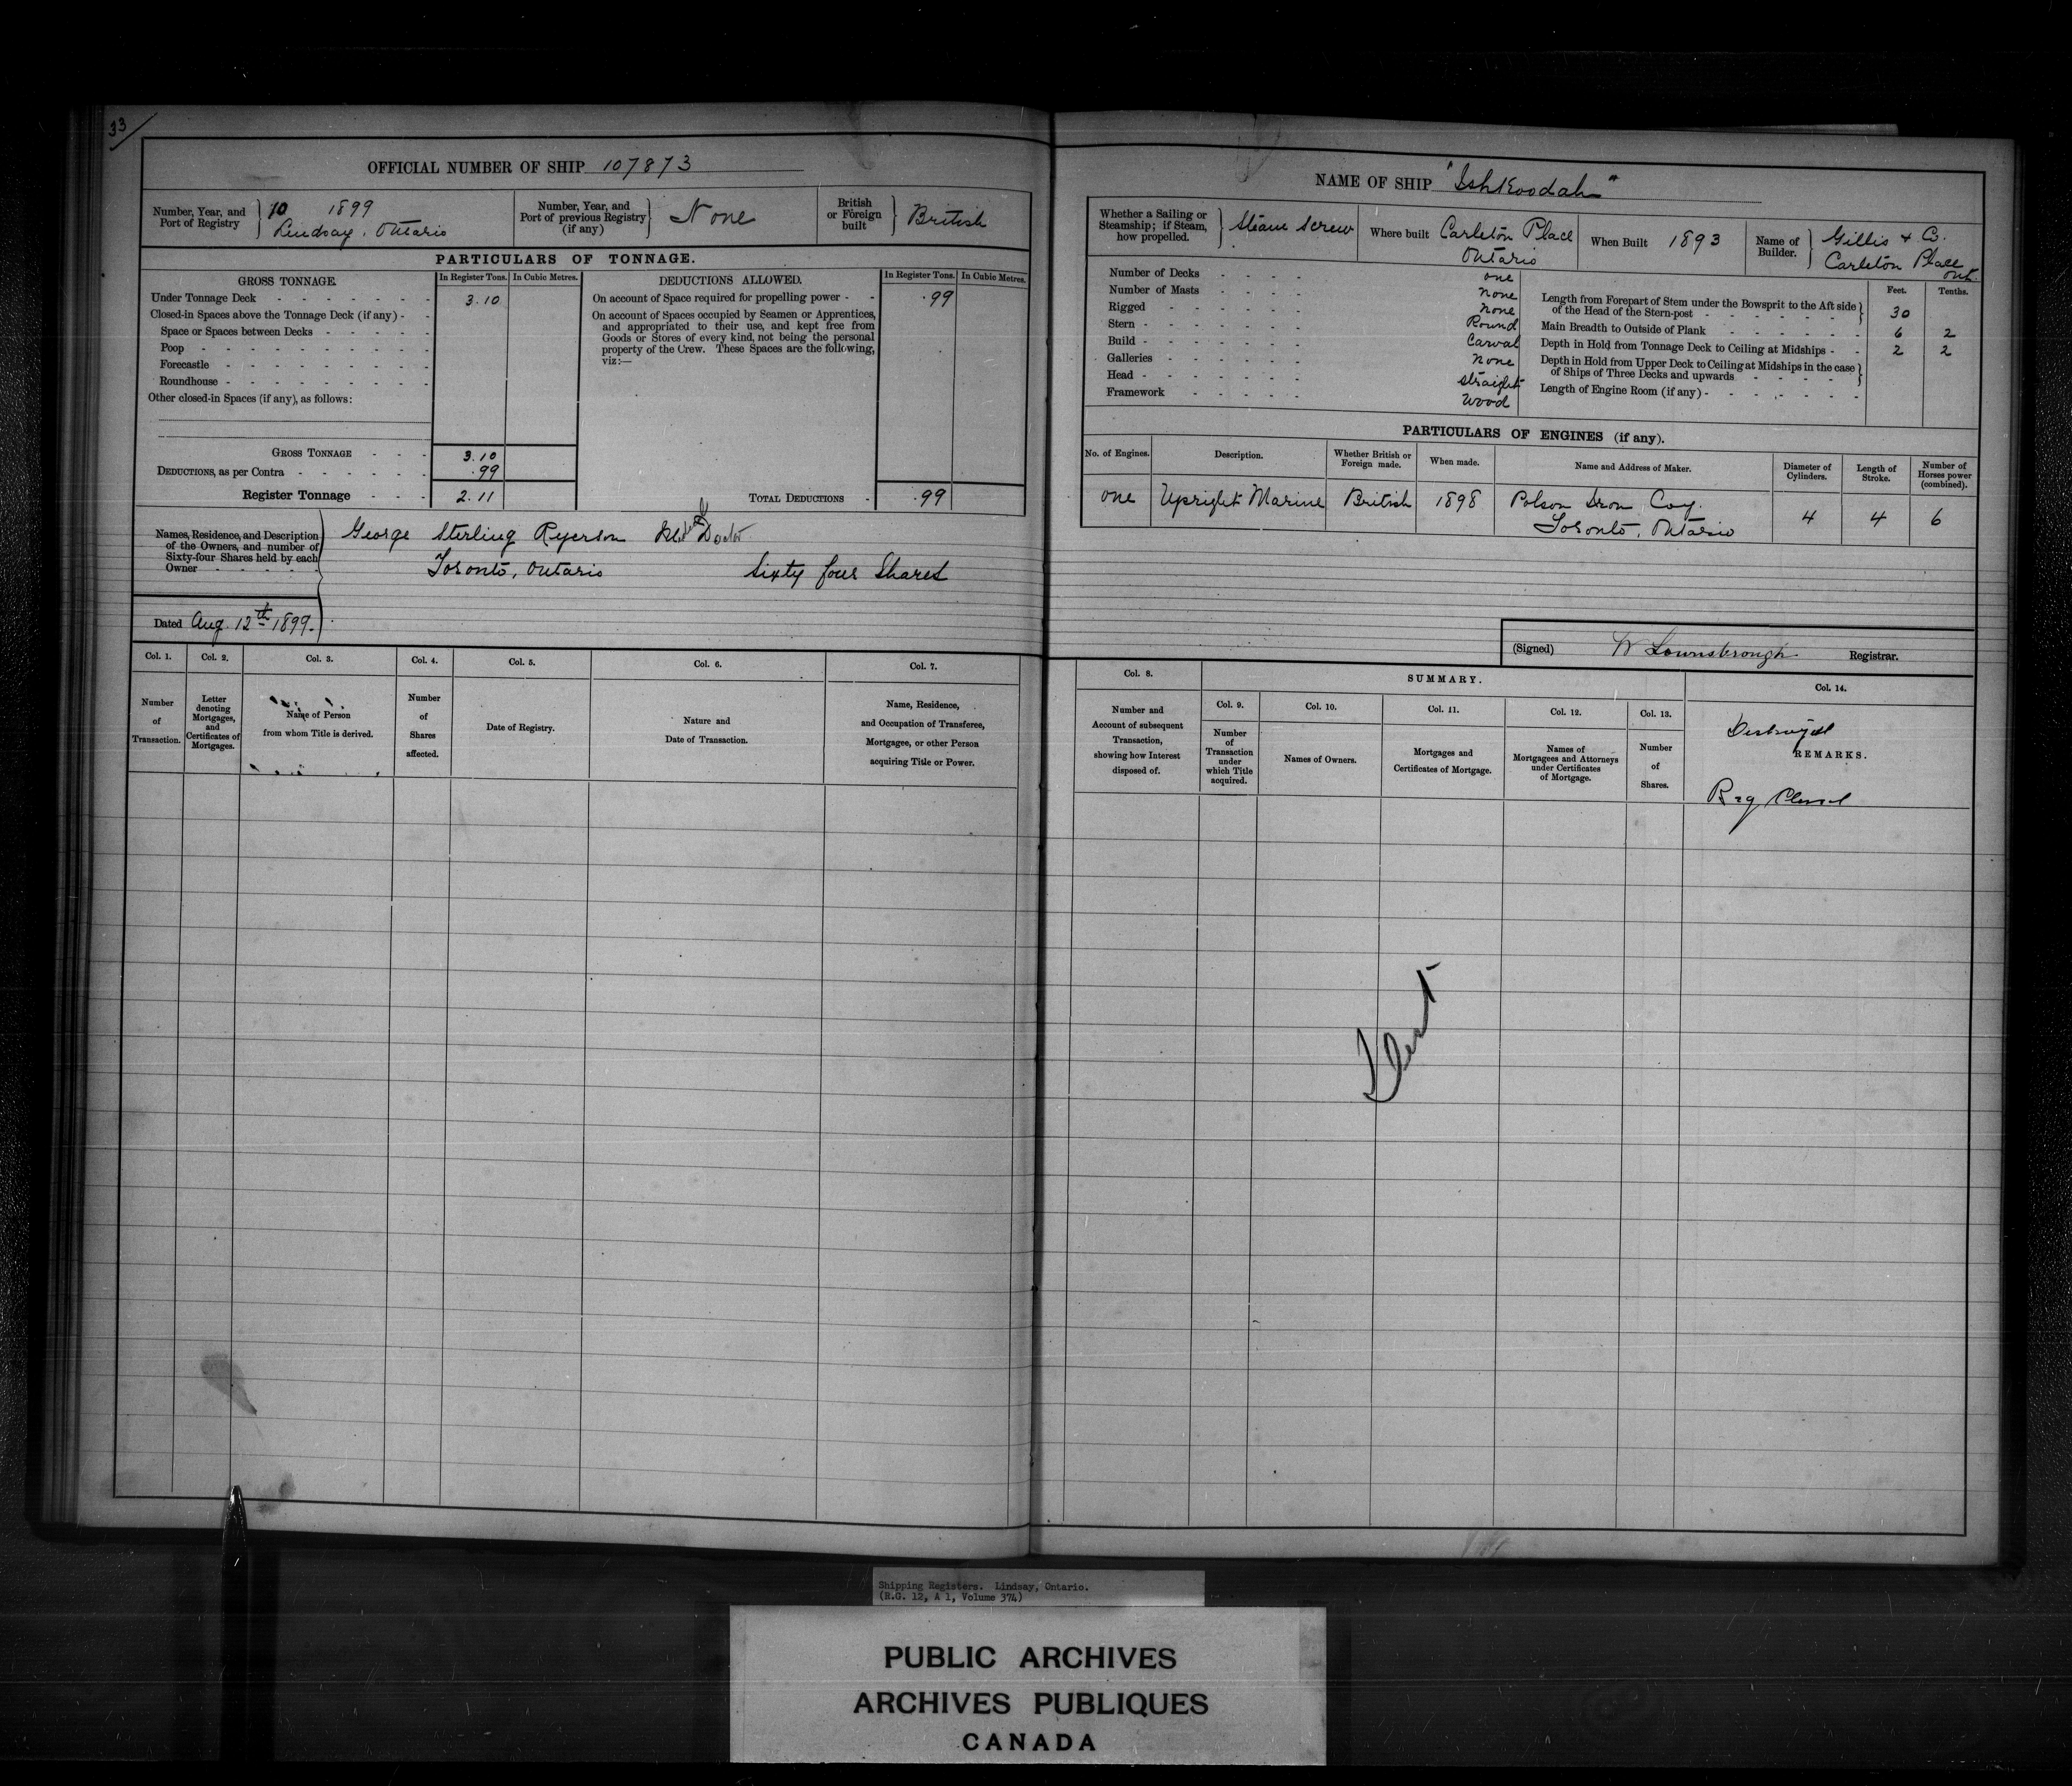 33
OFFICIAL NUMBER OF SHIP 107873
Number, Year, and Port of Registry
10 1899
Lindsay, Ontario
Number, Year, and Port of previous Registry (if any)
None
British or Foreign built
British
PARTICULARS OF TONNAGE.
GROSS TONNAGE. In Register Tons. In Cubic Metres.
Under Tonnage Deck 3.10
Closed-in Spaces above the Tonnage Deck (if any)
Space or Spaces between Decks
Poop
Forecastle
Roundhouse
Other closed-in Spaces (if any), as follows:
GROSS TONNAGE 3.10
DEDUCTIONS, as per Contra .99
Register Tonnage 2.11
DEDUCTIONS ALLOWED. In Register Tons. In Cubic Metres.
On account of Space required for propelling power .99
On account of Spaces occupied by Seamen or Apprentices,
and appropriated to their use, and kept free from
Goods or Stores of every kind, not being the personal
property of the Crew. These Spaces are the following,
viz:—
TOTAL DEDUCTIONS .99
Names, Residence, and Description
of the Owners, and number of
Sixty-four Shares held by each
Owner
George Sterling Ryerson Doctor
Toronto, Ontario Sixty four Shares
Dated Aug. 12th 1899.
Col. 1. Number of Transaction.
Col. 2. Letter denoting Mortgages, and Certificates of Mortgages.
Col. 3. Name of Person from whom Title is derived.
Col. 4. Number of Shares affected.
Col. 5. Date of Registry.
Col. 6. Nature and Date of Transaction.
Col. 7. Name, Residence, and Occupation of Transferee, Mortgagee, or other Person acquiring Title or Power.
NAME OF SHIP "Ishkoodah"
Whether a Sailing or Steamship; if Steam, how propelled.
Steam Screw
Where built Carleton Place
Ontario
When Built 1893
Name of Builder.
Gillis & Co.
Carleton Place
Ont.
Number of Decks one
Number of Masts none
Rigged none
Stern Round
Build Carval
Galleries none
Head straight
Framework Wood
Feet. Tenths.
Length from Forepart of Stem under the Bowsprit to the Aft side
of the Head of the Stern-post 30
Main Breadth to Outside of Plank 6 2
Depth in Hold from Tonnage Deck to Ceiling at Midships 2 2
Depth in Hold from Upper Deck to Ceiling at Midships in the case
of Ships of Three Decks and upwards
Length of Engine Room (if any)
PARTICULARS OF ENGINES (if any).
No. of Engines. Description. Whether British or Foreign made. When made. Name and Address of Maker. Diameter of Cylinders. Length of Stroke. Number of Horses power (combined).
one Upright Marine British 1898 Polson Iron Coy. 4 4 6
Toronto, Ontario
(Signed) W Lownsbrough Registrar.
Col. 8. Number and Account of subsequent Transaction, showing how Interest disposed of.
SUMMARY.
Col. 9. Number of Transaction under which Title acquired.
Col. 10. Names of Owners.
Col. 11. Mortgages and Certificates of Mortgage.
Col. 12. Names of Mortgagees and Attorneys under Certificates of Mortgage.
Col. 13. Number of Shares.
Col. 14.
Destroyed
REMARKS.
Reg Closed
Shipping Registers. Lindsay, Ontario.
(R.G. 12, A 1, Volume 374)
PUBLIC ARCHIVES
ARCHIVES PUBLIQUES
CANADA